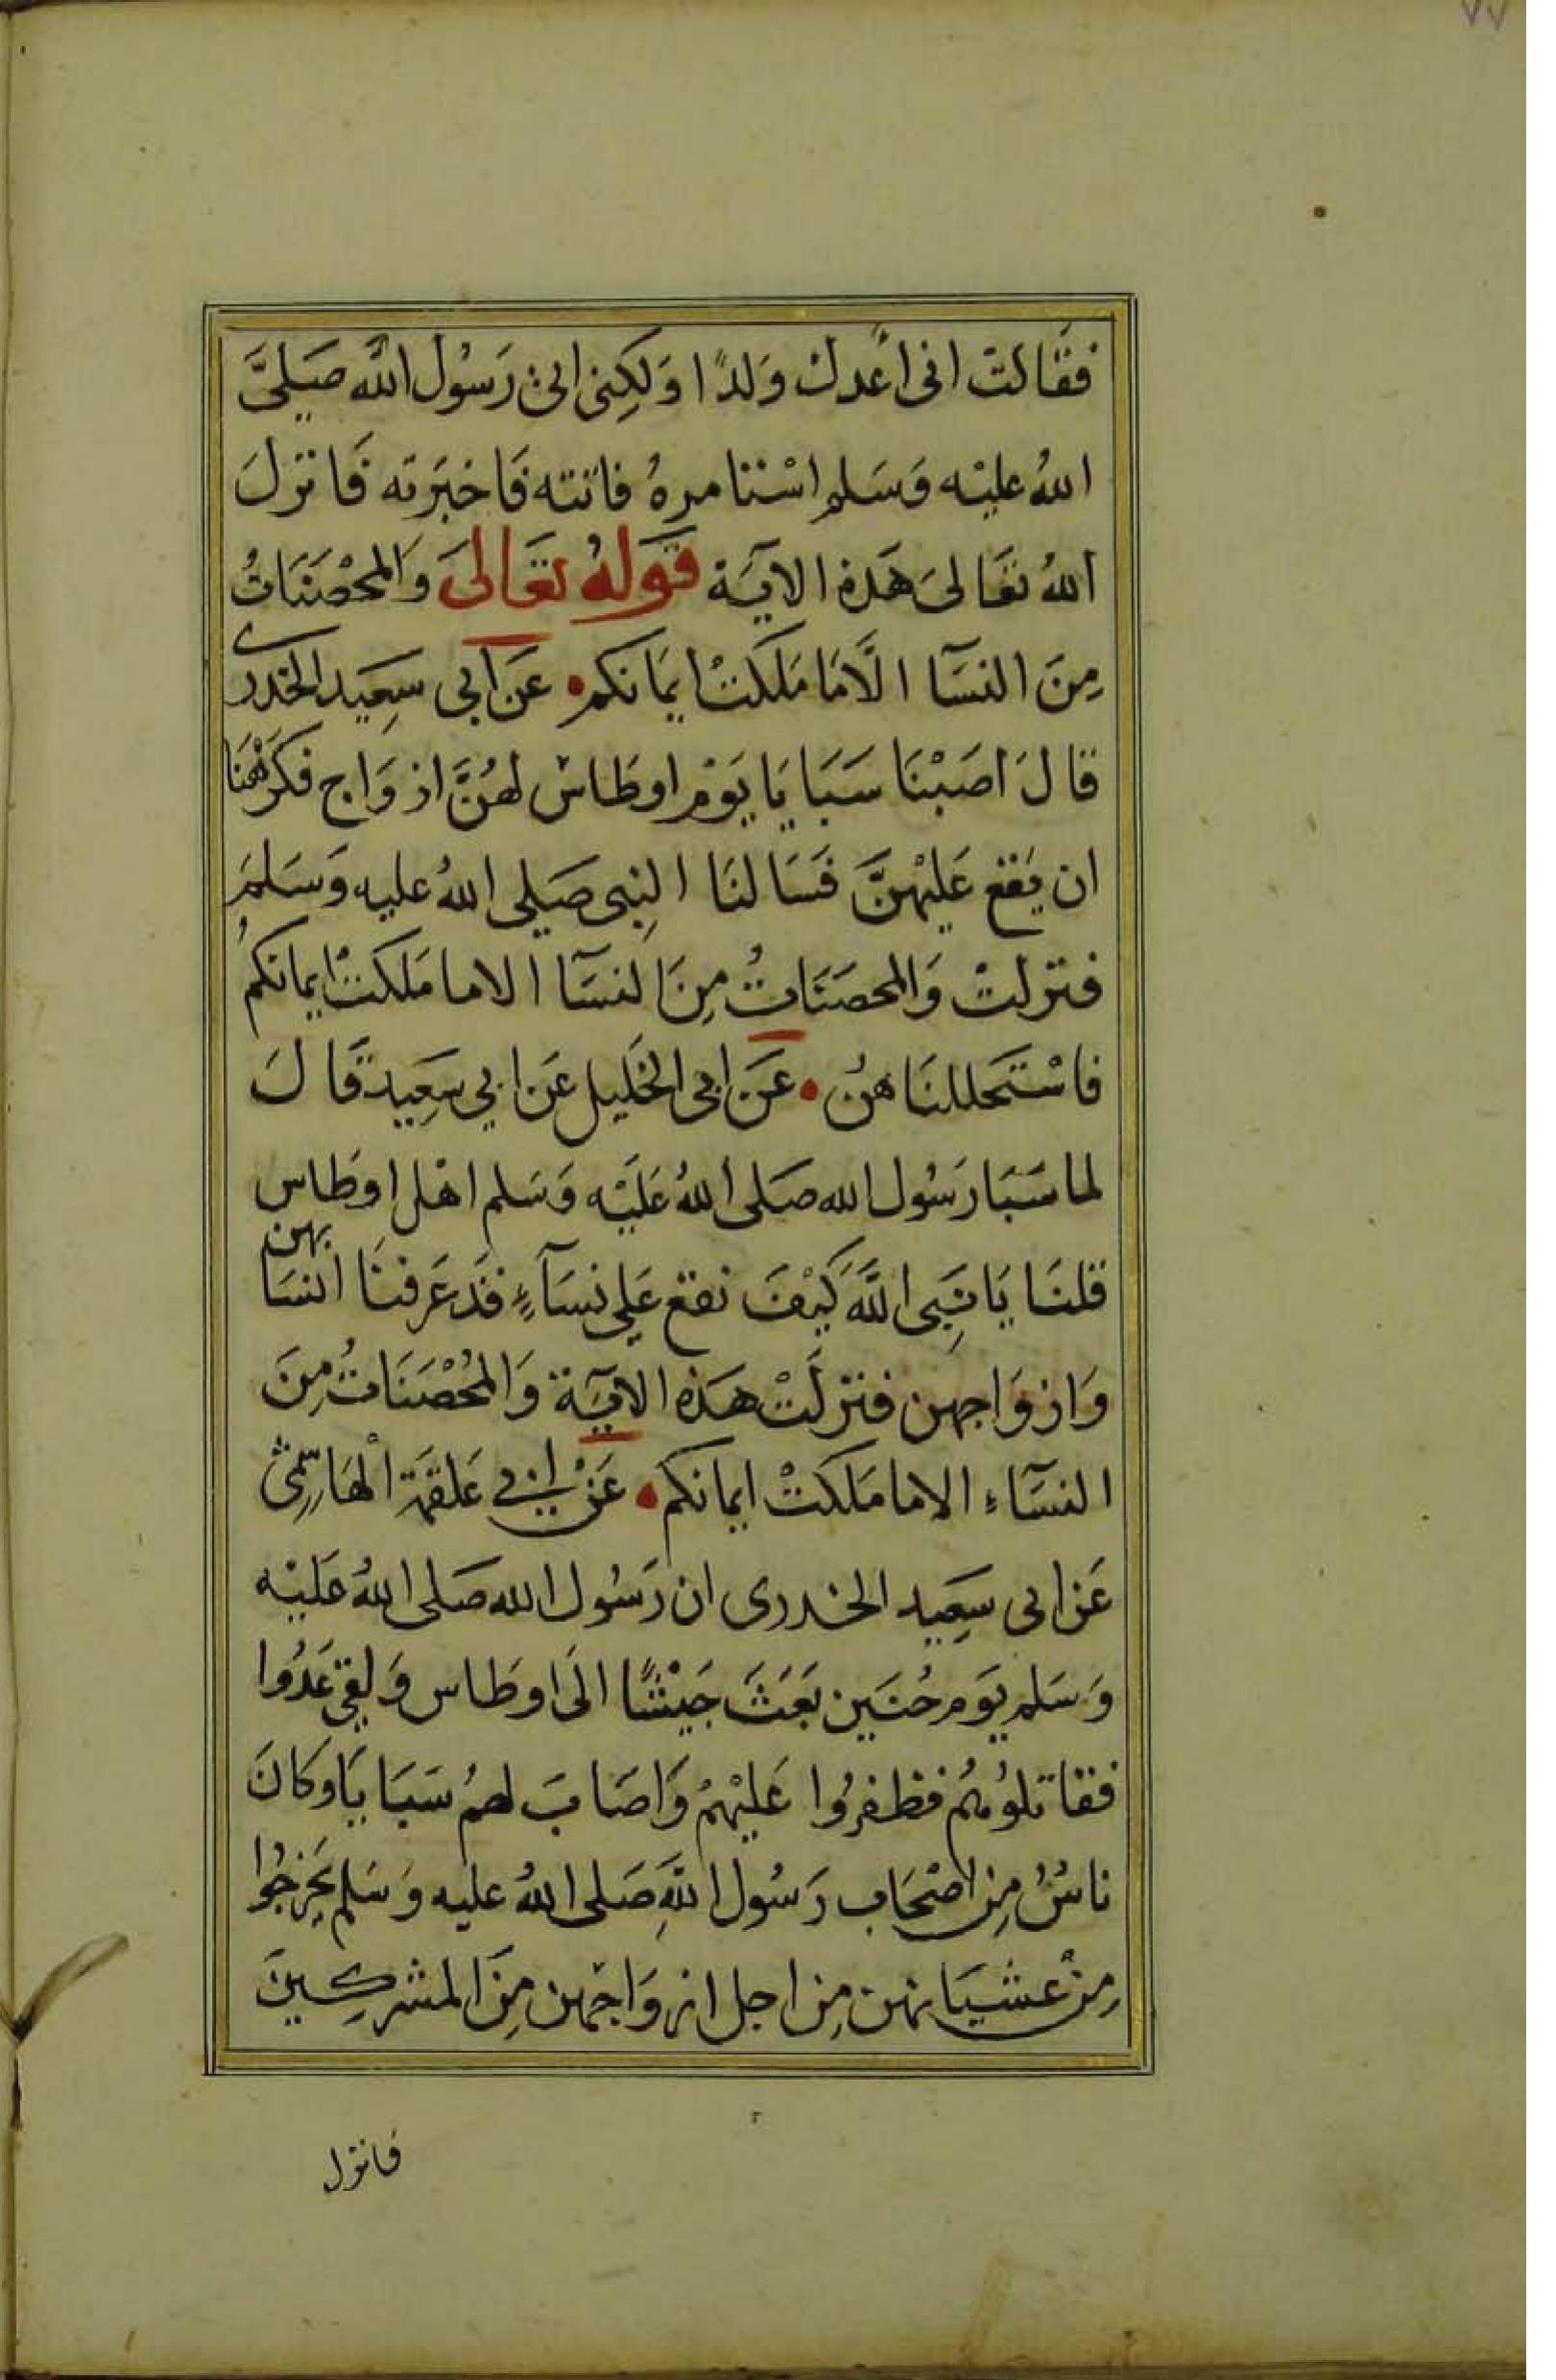 ٧٧
فقَالَت انى اعُدك وَلدًا وَلكِنى اتى رَسُول اللّٰه صَلىَّ
اللهُ عليْه وَسَلم اسْتامرهُ فاتته فَاخبَرته فَانزلَ
اللهُ تعَالىَ هَذه الايَة قَولهُ تعَالىَ وَالمحْصَنَاتُ
مِنَ النسَآ الَّا مَا مَلكَتْ ايمَانكم عَن ابى سعِيَد الخدرى
قالَ اصَبْنَا سَبَايَا يَوْم اوطَاسْ لهُنَّ ازوَاج فكرَهْنَا
ان يَقع عَليْهنَّ فَسَالنَا النِبى صَلى اللهُ عليه وَسَلمَ
فنزلتْ وَالمحصَنَاتُ مِنَ النسَآ الاما مَلكتْ ايمانكمُ
فاسْتَحللنَا هنُ عَن ابى الخَليل عَن ابي سَعِيد قَالَ
لما سَبَا رَسُول الله صَلى اللهُ عَليْه وَسَلم اهْل اوطَاس
قلنَا يَا نَبِى اللَّهَ كيْفَ نقع عَلى نسَآءٍ قَد عَرفنَا انسَا بهن
وَازوَاجهن فنزلَتْ هَذه الايَة وَالمُحْصَنَاتُ مِنَ
النسَآءِ الاما مَلكَتْ ايمانكم عَنْ ابي عَلقمَة الْهَاشمىْ
عَن ابى سَعِيد الخدرى ان رَسُول الله صَلى اللهُ عَليْه
وَسَلم يَوم حُنَين بَعَثَ جَيْشًا الَى اوطَاس وَلقى عَدُوا
فقاتلوُهُم فظفرُوا عَليْهمْ وَاصَابَ لهمُ سَبَايَا وكانَ
ناسٌ مِن اصْحَاب رَسُول اللّهِ صَلى اللهُ عليه وَسَلم تحَرجُوا
مِنْ غشيَانهن مِن اجل ازوَاجْهن مِنَ المشركِينَ
فانزل